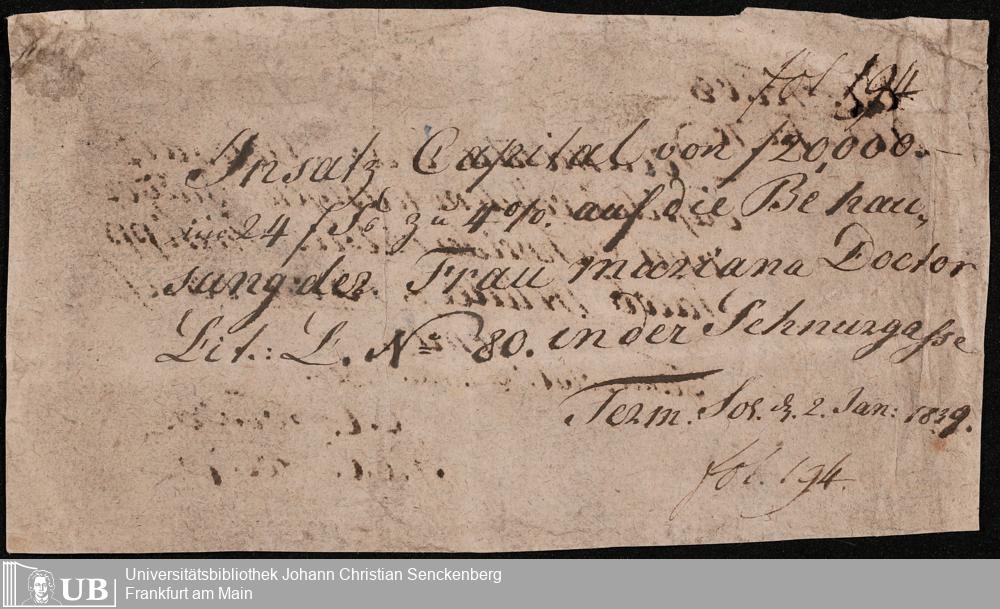 fol 194
Insatz Capital von f 20,000.-
im 24 f Fß zu 4%. auf die Behau„
sung der Frau Mariana Doctor
Lit.: L. No 80. in der Schnurgasse
Term. Sol. d. 2. Jan: 1839.
fol. 194.
UB
Universitätsbibliothek Johann Christian Senckenberg
Frankfurt am Main